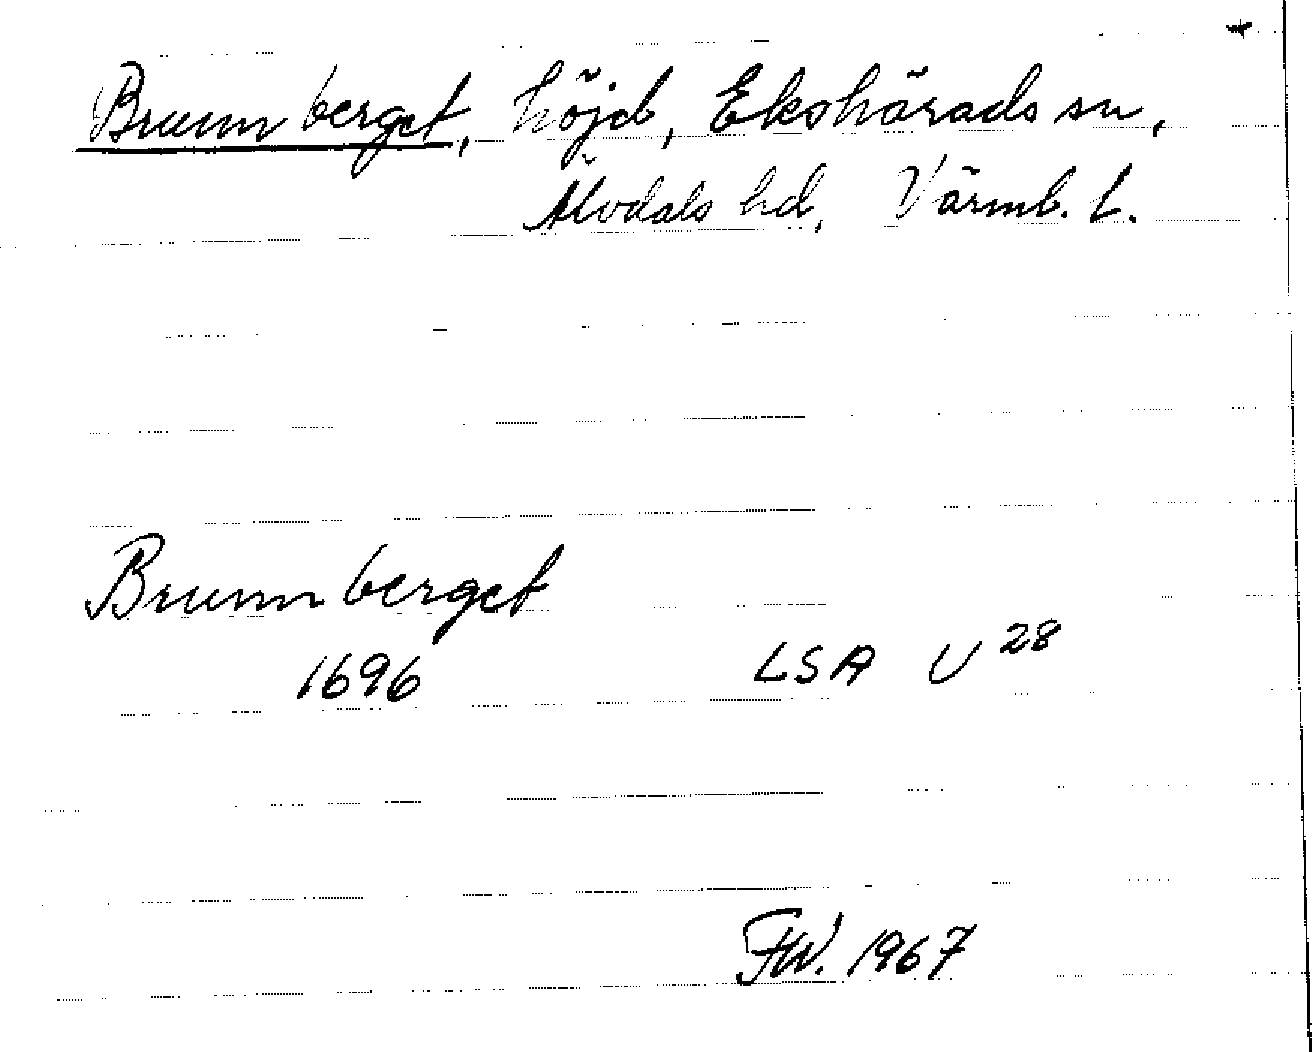 Brunnberget, höjd, Ekshärads sn,
Älvdals hd, Värml. l.
Brunnberget
1696 LSA U 28
FW. 1967